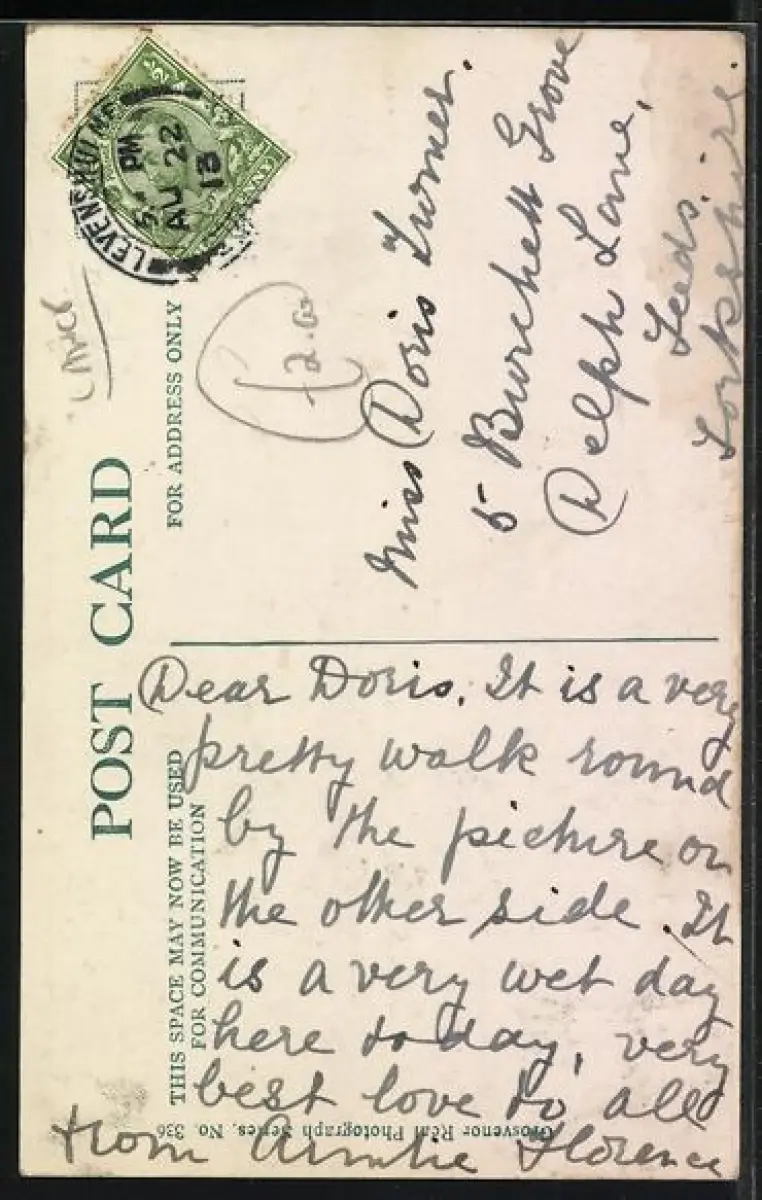 POST CARD
THIS SPACE MAY NOW BE USED
FOR COMMUNICATION
FOR ADDRESS ONLY
LEVENSHULME
5 PM
AU 22
13
Miss Doris Turner.
5 Burchett Grove
Delph Lane,
Leeds.
Yorkshire.
Dear Doris. It is a very
pretty walk round
by the picture on
the other side. It
is a very wet day
here to day, very
best love to all
from Auntie Florence
Grosvenor Real Photograph Series. No 336